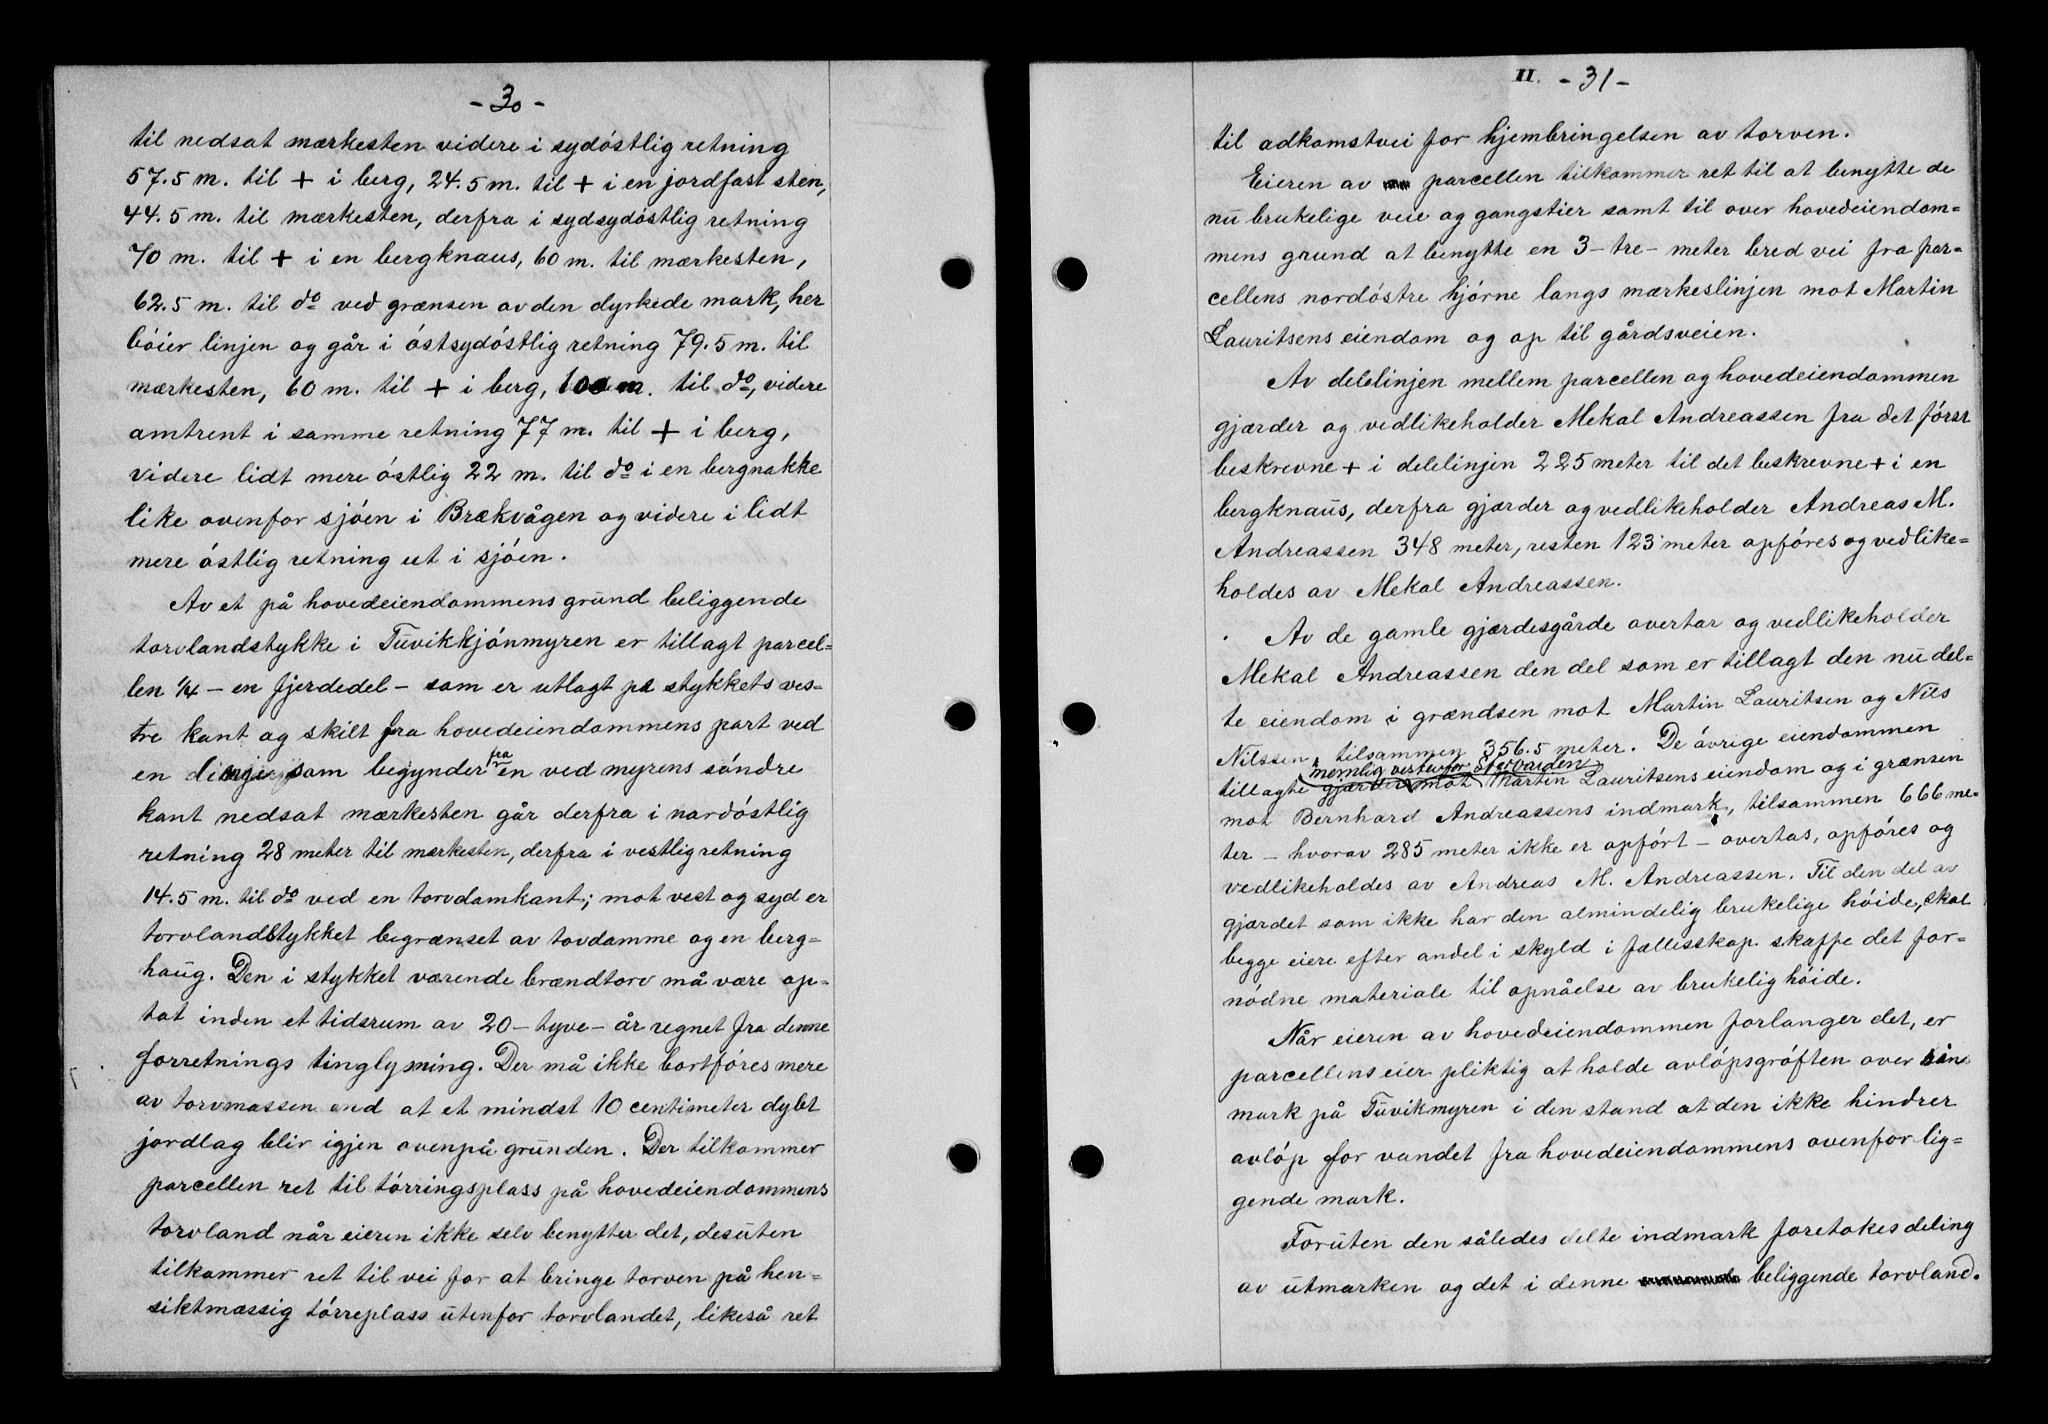 - 30 -
til nedsat mærkesten videre i sydóstlig retning
57.5 m. til + i berg, 24.5 m. til + i en jordfast sten,
44.5 m. til mærkesten, derfra i sydsydóstlig retning
70 m. til + i en bergknaus, 60 m. til mærkesten,
62.5 m. til do ved grænsen av den dyrkede mark, her
bóier linjen og går i óstsydóstlig retning 79.5 m. til
mærkesten, 60 m. til + i berg, 100 m. til do, videre
amtrent i samme retning 77 m. til + i berg,
videre lidt mere óstlig 22 m. til do i en bergnakke
like ovenfor sjóen i Brækvågen og videre i lidt
mere óstlig retning ut i sjóen.
Av et på hovedeiendommens grund beliggende
torvlandstykke i Tuvikkjónmyren er tillagt parcel-
len 1/4 - en fjerdedel - som er utlagt på stykkets ves-
tre kant og skilt fra hovedeiendommens part ved
en linje som begynder fra en ved myrens sóndre
kant nedsat mærkesten går derfra i nordóstlig
retning 28 meter til mærkesten, derfra i vestlig retning
14.5 m. til do ved en torvdamkant; mot vest og syd er
torvlandstykket begrænset av tovdamme og en berg-
haug. Den i stykket værende brændtorv må være op-
tat inden et tidsrum av 20 - tyve - år regnet fra denne
forretnings tinglysning. Der må ikke bortfóres mere
av torvmassen end at et mindst 10 centimeter dybt
jordlag blir igjen ovenpå grunden. Der tilkommer
parcellen ret til tórringsplass på hovedeiendommens
torvland når eieren ikke selv benytter det, desuten
tilkommer ret til vei for at bringe torven på hen-
siktmæssig tórreplass utenfor torvlandet, likeså ret
II. - 31 -
til adkomstvei for hjembringelsen av torven.
Eieren av parcellen tilkommer ret til at benytte de
nu brukelige veie og gangstier samt til over hovedeiendom-
mens grund at benytte en 3 - tre - meter bred vei fra par-
cellens nordóstre hjórne langs mærkeslinjen mot Martin
Lauritsens eiendom og op til gårdsveien.
Av delelinjen mellem parcellen og hovedeiendommen
gjærder og vedlikeholder Mekal Andreassen fra det fórst
beskrevne + i delelinjen 225 meter til det beskrevne + i en
bergknaus, derfra gjærder og vedlikeholder Andreas M.
Andreassen 348 meter, resten 123 meter opfóres og vedlike-
holdes av Mekal Andreassen.
Av de gamle gjærdesgårde overtar og vedlikeholder
Mekal Andreassen den del som er tillagt den nu del-
te eiendom i grændsen mot Martin Lauritsen og Nils
Nilssen, tilsammen 356.5 meter. De óvrige eiendommen
nemlig vestenfor
tillagte gjærder mot Martin Lauritsens eiendom og i grænsen
mot Bernhard Andreassens indmark, tilsammen 666 me-
ter - hvorav 285 meter ikke er opfórt - overtas, opfóres og
vedlikeholdes av Andreas M. Andreassen. Til den del av
gjærdet som ikke har den almindelig brukelige hóide, skal
begge eiere efter andel i skyld i fællisskap skaffe det for-
nódne materiale til opnåelse av brukelig hóide.
Når eieren av hovedeiendommen forlanger det, er
parcellens eier pliktig at holde avlópsgróften over sin
mark på Tuvikmyren i den stand at den ikke hindrer
avlóp for vandet fra hovedeiendommens ovenfor lig-
gende mark.
Foruten den således delte indmark foretokes deling
av utmarken og det i denne beliggende torvland.